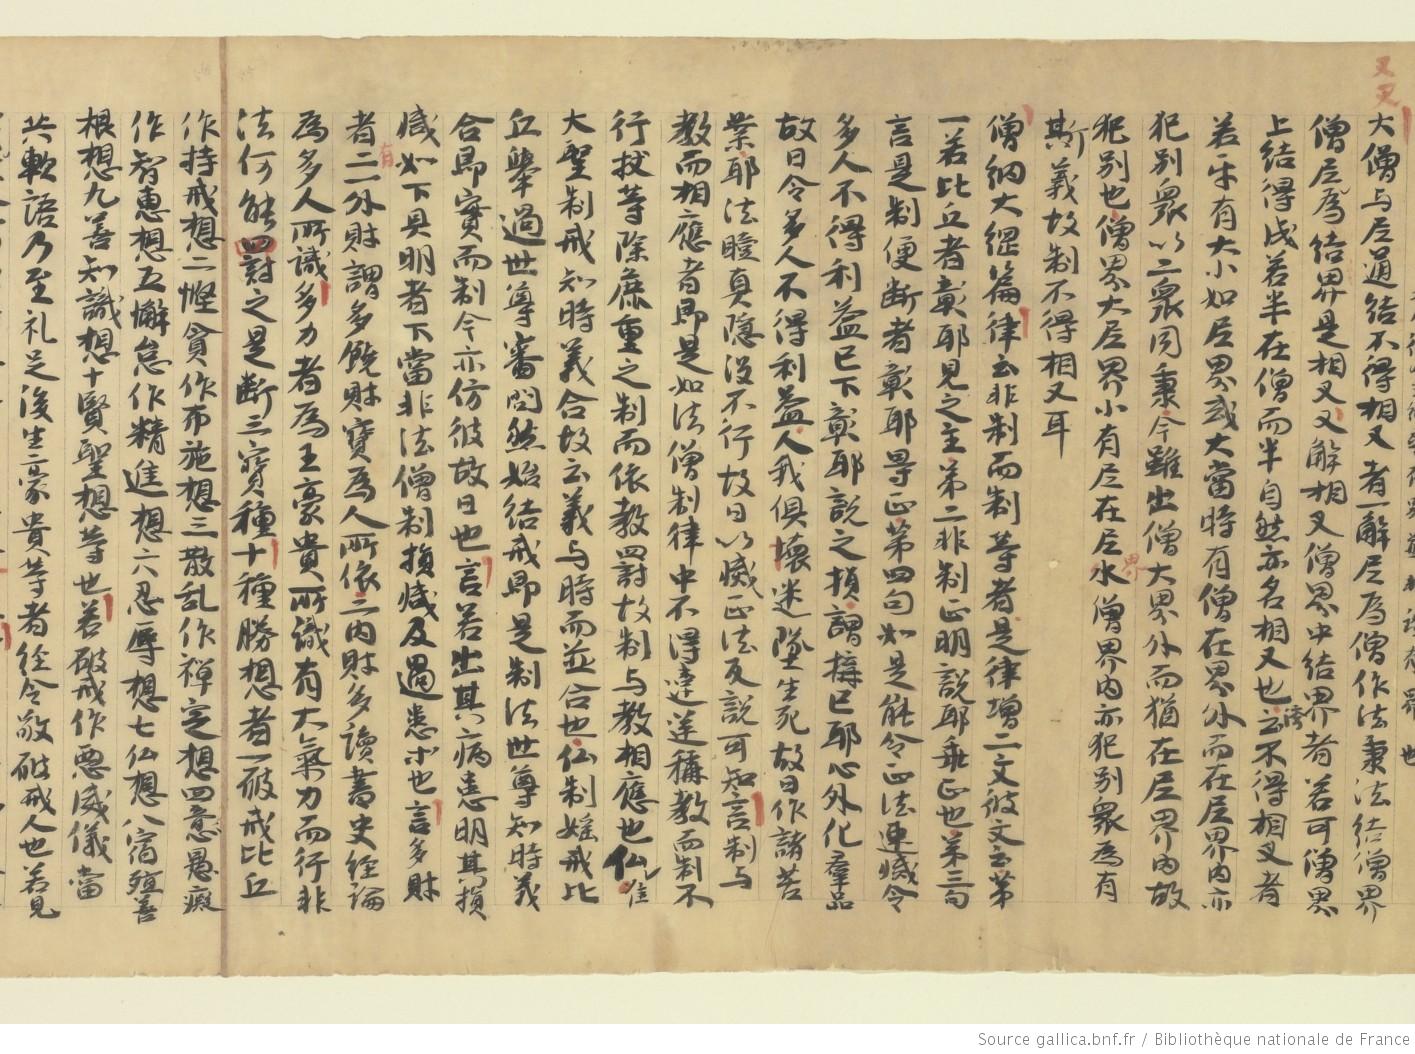 大僧与尼通結不得相叉者一解尼為僧作法秉法結僧界
僧尼為結界是相叉又解相叉僧界中結界者若可僧界
上結得成若半在僧而半自然亦名相叉也湾云不得相叉者
若乐有大小如尼界或大當時有僧在界外而在尼界內亦
犯別衆以二衆同秉今雖出僧大界外而猶在尼界內故
犯別也僧界大尼界小有尼在尼界水僧界內亦犯別衆為有
斯義故制不得相叉耳
僧綱大綱篇律云非制而制等者是律增二文彼文云第
一若比丘者彰耶見之主第二非制正明說耶乖正也第三句
言是制便断者彰耶辱正第四句如是能令正法速滅令
多人不得利益已下彰耶說之損謂損已耶心外化羣品
故曰令多人不得利益人我俱壞迷墜生死故曰作諸苦
業耶法曀真隱没不行故曰以滅正法反說可知言制与
教而相應者即是如法僧制律中不得違逆稱教而制不
行杖等除麁重之制而依教罰故制与教相應也仏准
大聖制戒知時義合故云義与時而並合也仏制婬戒比
丘舉過世尊審問然始結戒即是制法世尊知時義
合即實而制今亦仿彼故曰也言若出其病患明其損
滅如下具明者下當非法僧制損滅及過患尔也言多財
者有二一外財謂多饒財寶為人所依二內財多讀書史經論
為多人所識多力者為王豪貴所識有大氣力而行非
法何能罰之是断三寶種十種勝想者一破戒比丘
作持戒想二慳貪作布施想三散乱作禅定想四愚癡
作智惠想五懈怠作精進想六忍辱想七仏想八宿殖善
根想九善知識想十賢聖想等也若破戒作悪威儀當
共軟語乃至礼足後生豪貴等者経令敬破戒人也若見
Source gallica.bnf.fr / Bibliothèque nationale de France